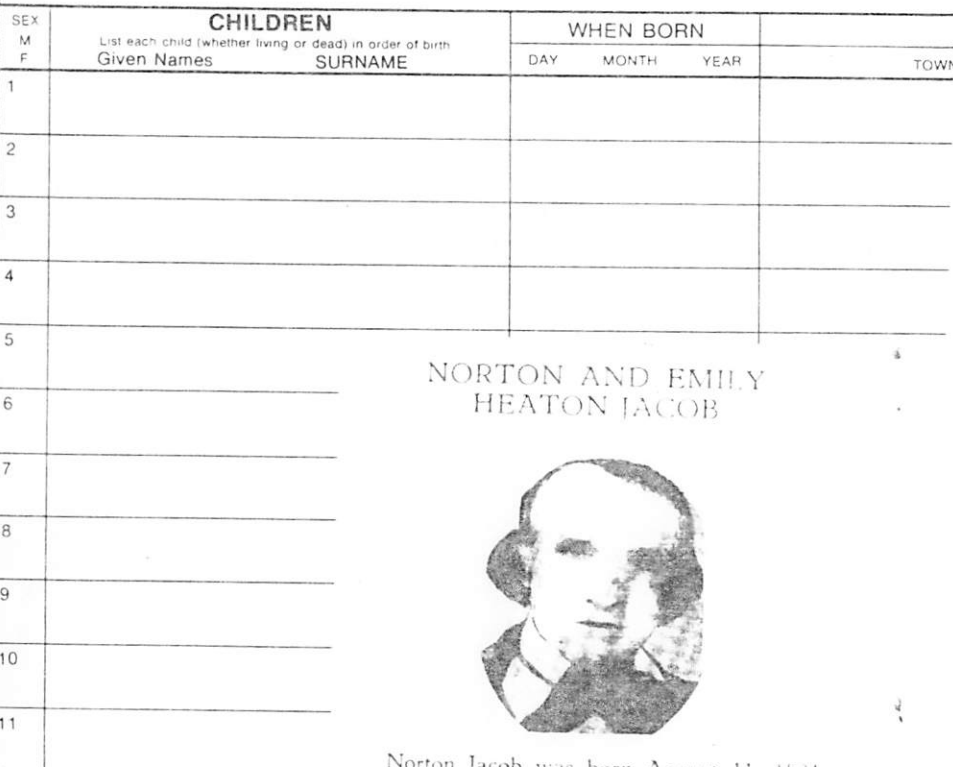 SEX
M
F
CHILDREN
List each child (whether living or dead) in order of birth
Given Names SURNAME
WHEN BORN
DAY MONTH YEAR
TOWN
1
2
3
4
5
6
7
8
9
10
11
NORTON AND EMILY
HEATON JACOB
Norton Jacob was born